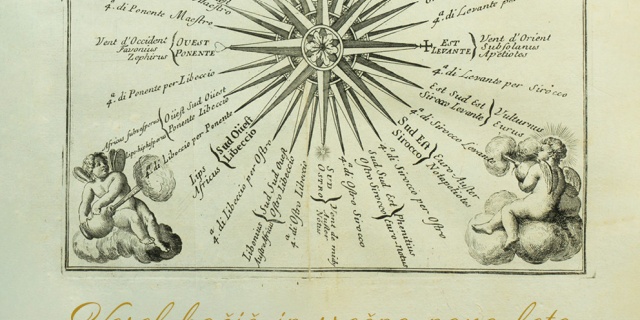 4ª di Ponente Maestro
4ª di Levante per
Vent d'Occident
Favonius
Zephirus
OUEST
PONENTE
EST
LEVANTE
Vent d'Orient
Subsolanus
Apeliotes
4ª di Ponente per Libeccio
4ª di Levante per Sirocco
Oüest Sud Oüest
Ponente Libeccio
Est Sud Est
Sirocco Levante
Vulturnus
Eurus
4ª di Libeccio per Ponente
4ª di Sirocco Levante
Lips
Africus
Sud Oüest
Libeccio
Sud Est
Sirocco
Euro-Auster
Notapeliotes
4ª di Libeccio per Ostro
4ª di Sirocco per Ostro
Libonotus
Austro Africus
Sud Sud Oüest
Ostro Libeccio
Sud Sud Est
Ostro Sirocco
Phenitius
Euro-notus
4ª di Ostro Libeccio
4ª di Ostro Sirocco
SUD
OSTRO
Vent de midy
Auster
Notus